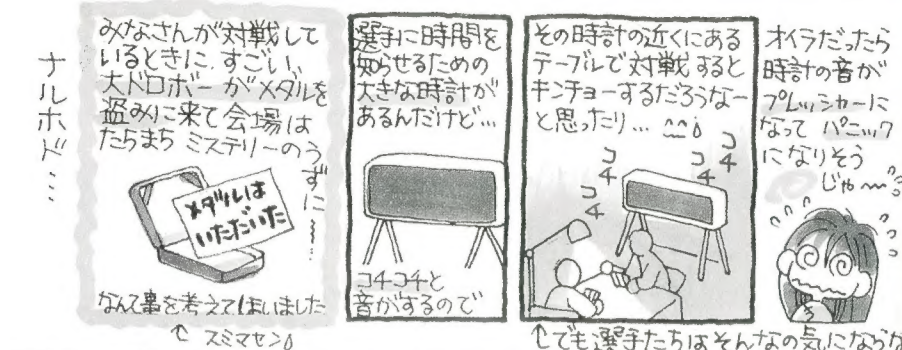 ナルホド…
みなさんが対戦して
いるときに、すごい、
大ドロボーがメダルを
盗みに来て会場は
たちまち ミステリーのうずに〜〜
メダルは
いただいた
なんて事を考えてしまいました
↑ スミマセン
選手に時間を
知らせるための
大きな時計が
あるんだけど…
コチコチと
音がするので
その時計の近くにある
テーブルで対戦すると
キンチョーするだろうなー
と思ったり…
コチ
コチ
コチ
↑でも選手たちはそんなの気にならな
オイラだったら
時計の音が
プレッシャーに
なって パニック
になりそう
じゃ〜